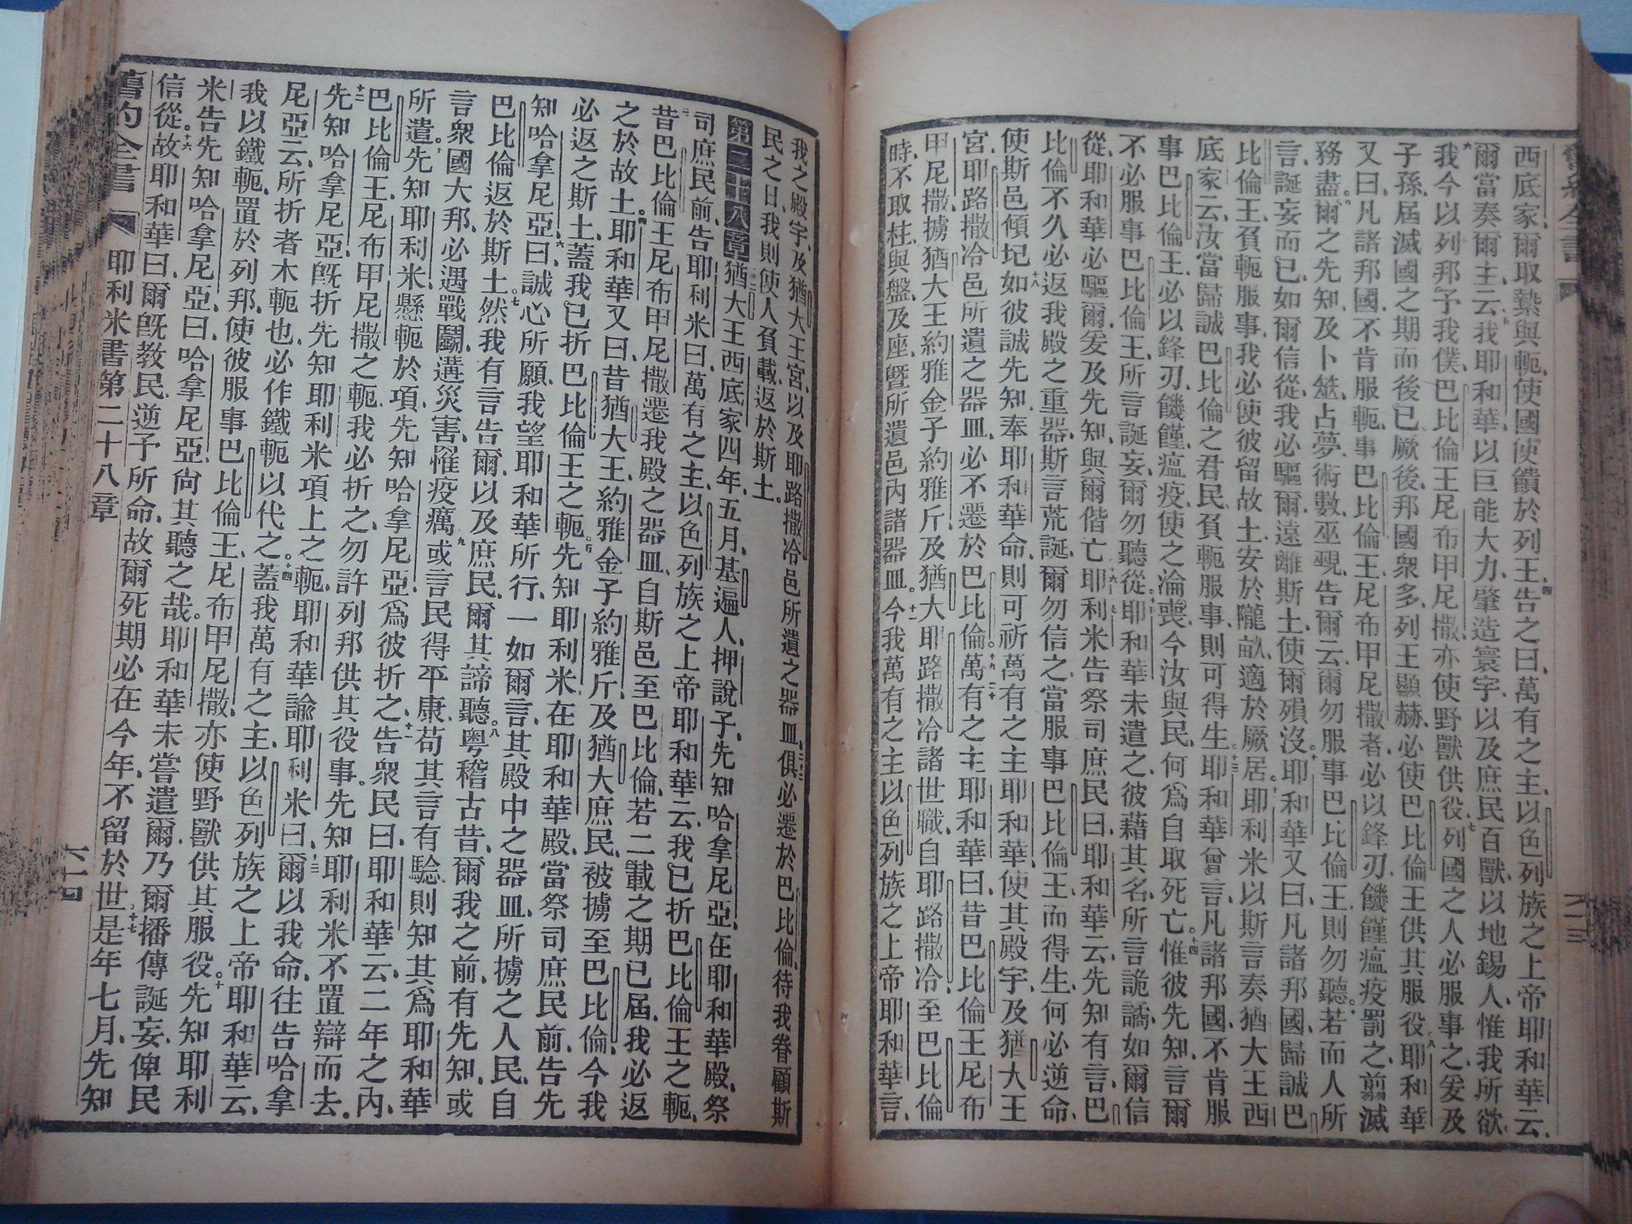 西底家、爾取縶與軛、使國使饋於列王、告之曰、萬有之主、以色列族之上帝耶和華云、
爾當奏爾主云、我耶和華以巨能大力、肇造寰宇、以及庶民百獸、以地錫人、惟我所欲、
我今以列邦、予我僕、巴比倫王尼布甲尼撒、亦使野獸供役、列國之人、必服事之、爰及
子孫、屆滅國之期而後已、厥後邦國衆多、列王顯赫、必使巴比倫王供其服役、耶和華
又曰、凡諸邦國、不肯服軛、事巴比倫王尼布甲尼撒者、必以鋒刃饑饉瘟疫罰之、翦滅
務盡、爾之先知、及卜筮占夢、術數巫覡、告爾云、爾勿服事巴比倫王、則勿聽、若而人所
言、誕妄而已、如爾信從、我必驅爾、遠離斯土、使爾殞沒、耶和華又曰、凡諸邦國、歸誠巴
比倫王、負軛服事、我必使彼留故土、安於隴畝、適於厥居、耶利米以斯言奏猶大王西
底家云、汝當歸誠巴比倫之君、民負軛服事、則可得生、耶和華曾言、凡諸邦國、不肯服
事巴比倫王、必以鋒刃饑饉瘟疫、使之淪喪、今汝與民、何爲自取死亡、惟彼先知、言爾
不必服事巴比倫王、所言誕妄、爾勿聽從、耶和華未遣之、彼藉其名、所言詭譎、如爾信
從、耶和華必驅爾、爰及先知、與爾偕亡、耶利米告祭司庶民曰、耶和華云、先知有言、巴
比倫不久必返我殿之重器、斯言荒誕、爾勿信之、當服事巴比倫王而得生、何必逆命、
使斯邑傾圮、如彼誠先知、奉耶和華命、則可祈萬有之主耶和華、使其殿宇、及猶大王
宮、耶路撒冷邑所遺之器皿、必不遷於巴比倫、萬有之主耶和華曰、昔巴比倫王尼布
甲尼撒擄猶大王約雅金子約雅斤、及猶大耶路撒冷諸世職、自耶路撒冷、至巴比倫
時、不取柱與盤、及座、曁所遺邑內諸器皿、今我萬有之主、以色列族之上帝耶和華言、
我之殿宇、及猶大王宮、以及耶路撒冷邑所遺之器皿、俱必遷於巴比倫、待我眷顧斯
民之日、我則使人負載、返於斯土、
第二十八章 猶大王西底家四年、五月、基遍人押說子、先知哈拿尼亞、在耶和華殿、祭
司庶民前、告耶利米曰、萬有之主、以色列族之上帝耶和華云、我已折巴比倫王之軛、
昔巴比倫王尼布甲尼撒、遷我殿之器皿、自斯邑至巴比倫、若二載之期已屆、我必返
之於故土、耶和華又曰、昔猶大王、約雅金子約雅斤、及猶大庶民、被擄至巴比倫、今我
必返之斯土、蓋我已折巴比倫王之軛、先知耶利米在耶和華殿、當祭司庶民前、告先
知哈拿尼亞曰、誠心所願、我望耶和華所行、一如爾言、其殿中之器皿、所擄之人民、自
巴比倫返於斯土、然我有言告爾、以及庶民、爾其諦聽、粵稽古昔、爾我之前、有先知、或
言衆國大邦、必遇戰鬬、遘災害、罹疫癘、或言民得平康、苟其言有驗、則知其爲耶和華
所遣、先知耶利米懸軛於項、先知哈拿尼亞爲彼折之、告衆民曰、耶和華云、二年之內、
巴比倫王尼布甲尼撒之軛、我必折之、勿許列邦供其役事、先知耶利米不置辯而去、
先知哈拿尼亞、旣折先知耶利米項上之軛、耶和華諭耶利米曰、爾以我命、往告哈拿
尼亞云、所折者木軛也、必作鐵軛以代之、蓋我萬有之主、以色列族之上帝耶和華云、
我以鐵軛、置於列邦、使彼服事巴比倫王尼布甲尼撒、亦使野獸供其服役、先知耶利
米告先知哈拿尼亞曰、哈拿尼亞、尙其聽之哉、耶和華未嘗遣爾、乃爾播傳誕妄、俾民
信從、故耶和華曰、爾旣教民、逆予所命、故爾死期必在今年、不留於世、是年七月、先知
舊約全書 耶利米書第二十八章 六十四